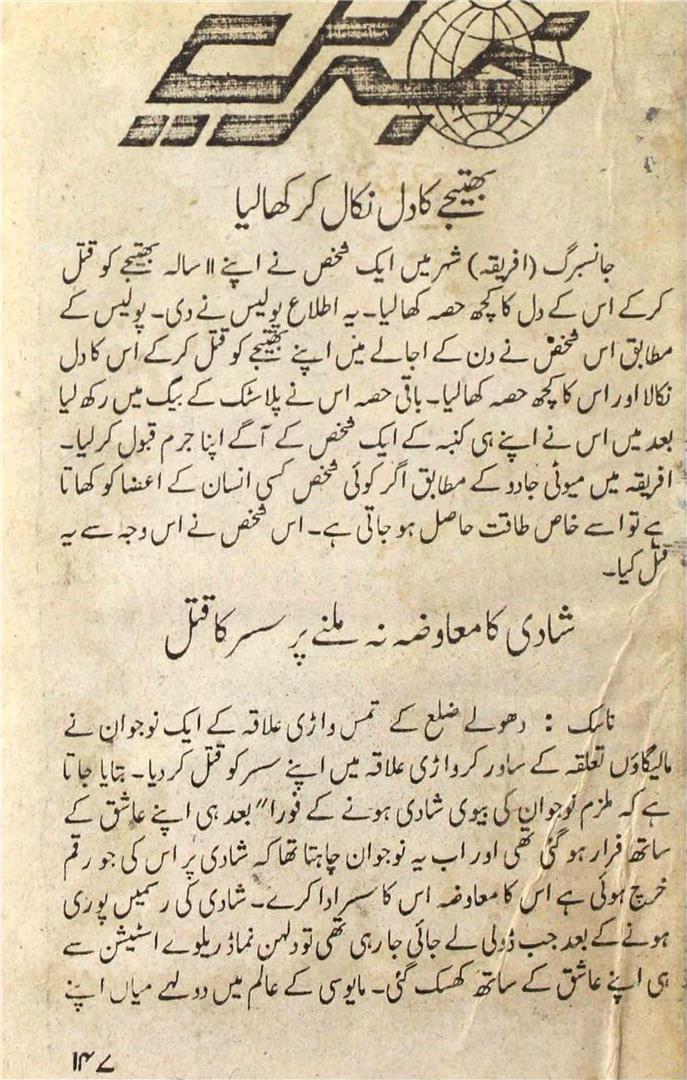 خبریں
بھتیجے کا دل نکال کر کھا لیا
جانسبرگ (افریقہ) شہر میں ایک شخص نے اپنے ۱۱ سالہ بھتیجے کو قتل
کرکے اس کے دل کا کچھ حصہ کھا لیا۔ یہ اطلاع پولیس نے دی۔ پولیس کے
مطابق اس شخص نے دن کے اجالے میں اپنے بھتیجے کو قتل کرکے اس کا دل
نکالا اور اس کا کچھ حصہ کھا لیا۔ باقی حصہ اس نے پلاسٹک کے بیگ میں رکھ لیا
بعد میں اس نے اپنے ہی کنبہ کے ایک شخص کے آگے اپنا جرم قبول کرلیا۔
افریقہ میں میوٹی جادو کے مطابق اگر کوئی شخص کسی انسان کے اعضا کو کھاتا
ہے تو اسے خاص طاقت حاصل ہو جاتی ہے۔ اس شخص نے اس وجہ سے یہ
قتل کیا۔
شادی کا معاوضہ نہ ملنے پر سسر کا قتل
ناسک : دھولے ضلع کے تمس واڑی علاقہ کے ایک نوجوان نے
مالیگاؤں تعلقہ کے ساور کرواڑی علاقہ میں اپنے سسر کو قتل کر دیا۔ بتایا جاتا
ہے کہ ملزم نوجوان کی بیوی شادی ہونے کے فورا" بعد ہی اپنے عاشق کے
ساتھ فرار ہو گئی تھی اور اب یہ نوجوان چاہتا تھا کہ شادی پر اس کی جو رقم
خرچ ہوئی ہے اس کا معاوضہ اس کا سسر ادا کرے۔ شادی کی رسمیں پوری
ہونے کے بعد جب ڈولی لے جائی جا رہی تھی تو دلہن نماڈ ریلوے اسٹیشن سے
ہی اپنے عاشق کے ساتھ کھسک گئی۔ مایوسی کے عالم میں دولہے میاں اپنے
۱۴۷